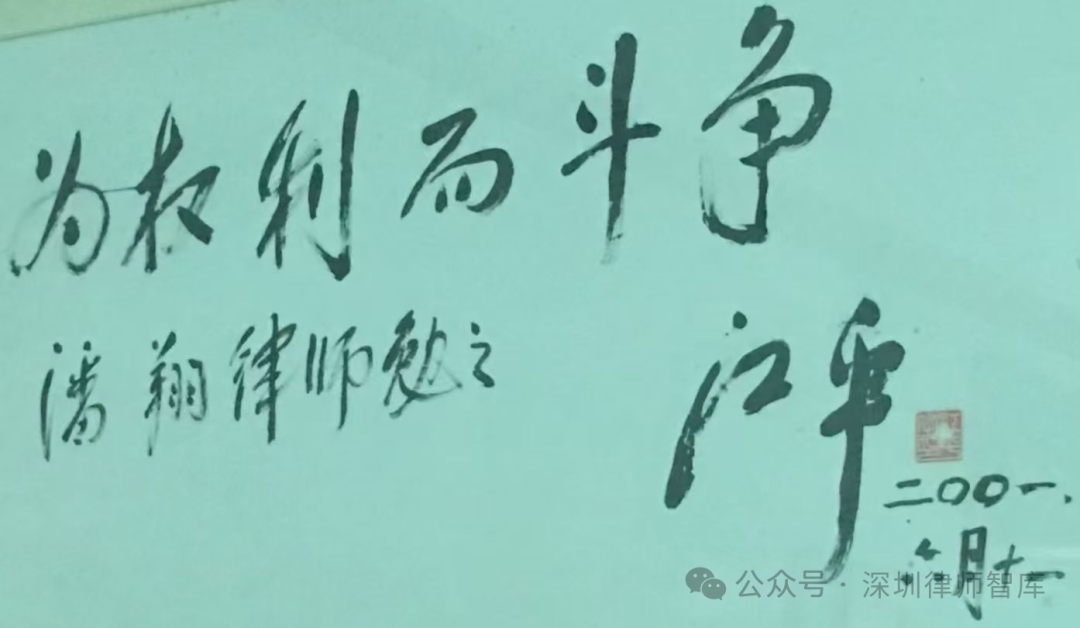 为权利而斗争
潘翔律师勉之
江平
二〇〇一.
六月十一
公众号 · 深圳律师智库